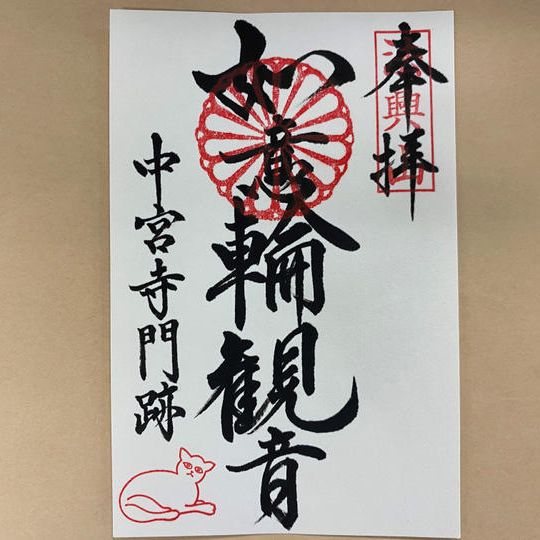 奉拝
如意輪観音
中宮寺門跡